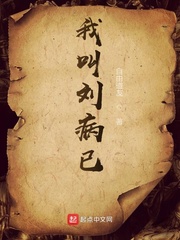 我叫刘病已
著
起点中文网